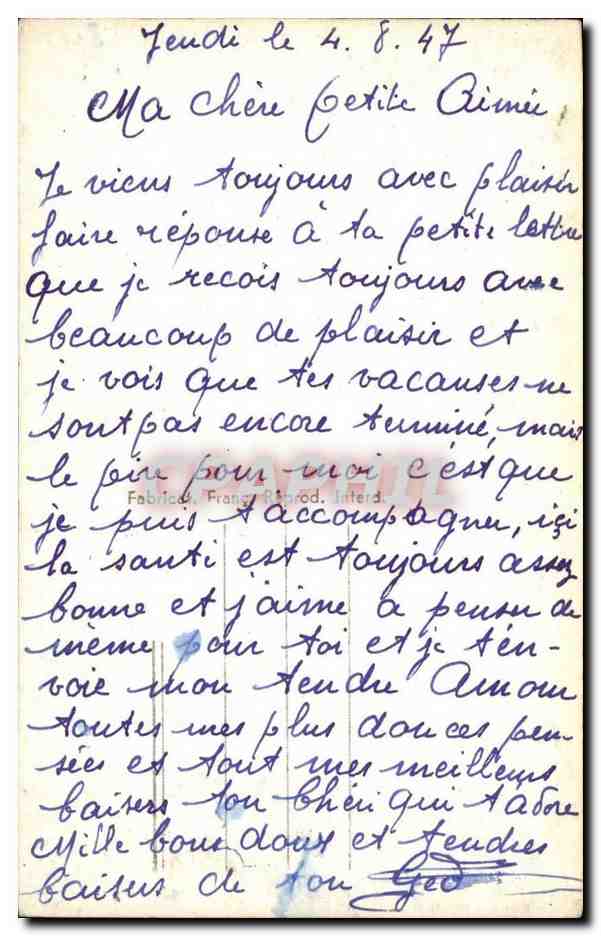 Jeudi le 4.8.47
Ma chère petite Aimée
Je viens toujours avec plaisir
faire réponse à ta petite lettre
que je recois toujours avec
beaucoup de plaisir et
je vois que tes vacanses ne
sont pas encore terminé, mais
le pire pour moi c'est que
Fabricat. Franç. Réprod. Interd.
je puis t'accompagner, içi
la santi est toujours assez
bonne et j'aime a penser de
mème pour toi et je t'en-
voie mon tendre Amour
toutes mes plus douces pen-
sées et tout mes meilleurs
baisers ton Chéri qui t'adore
Mille bons doux et tendres
baisers de ton Geo